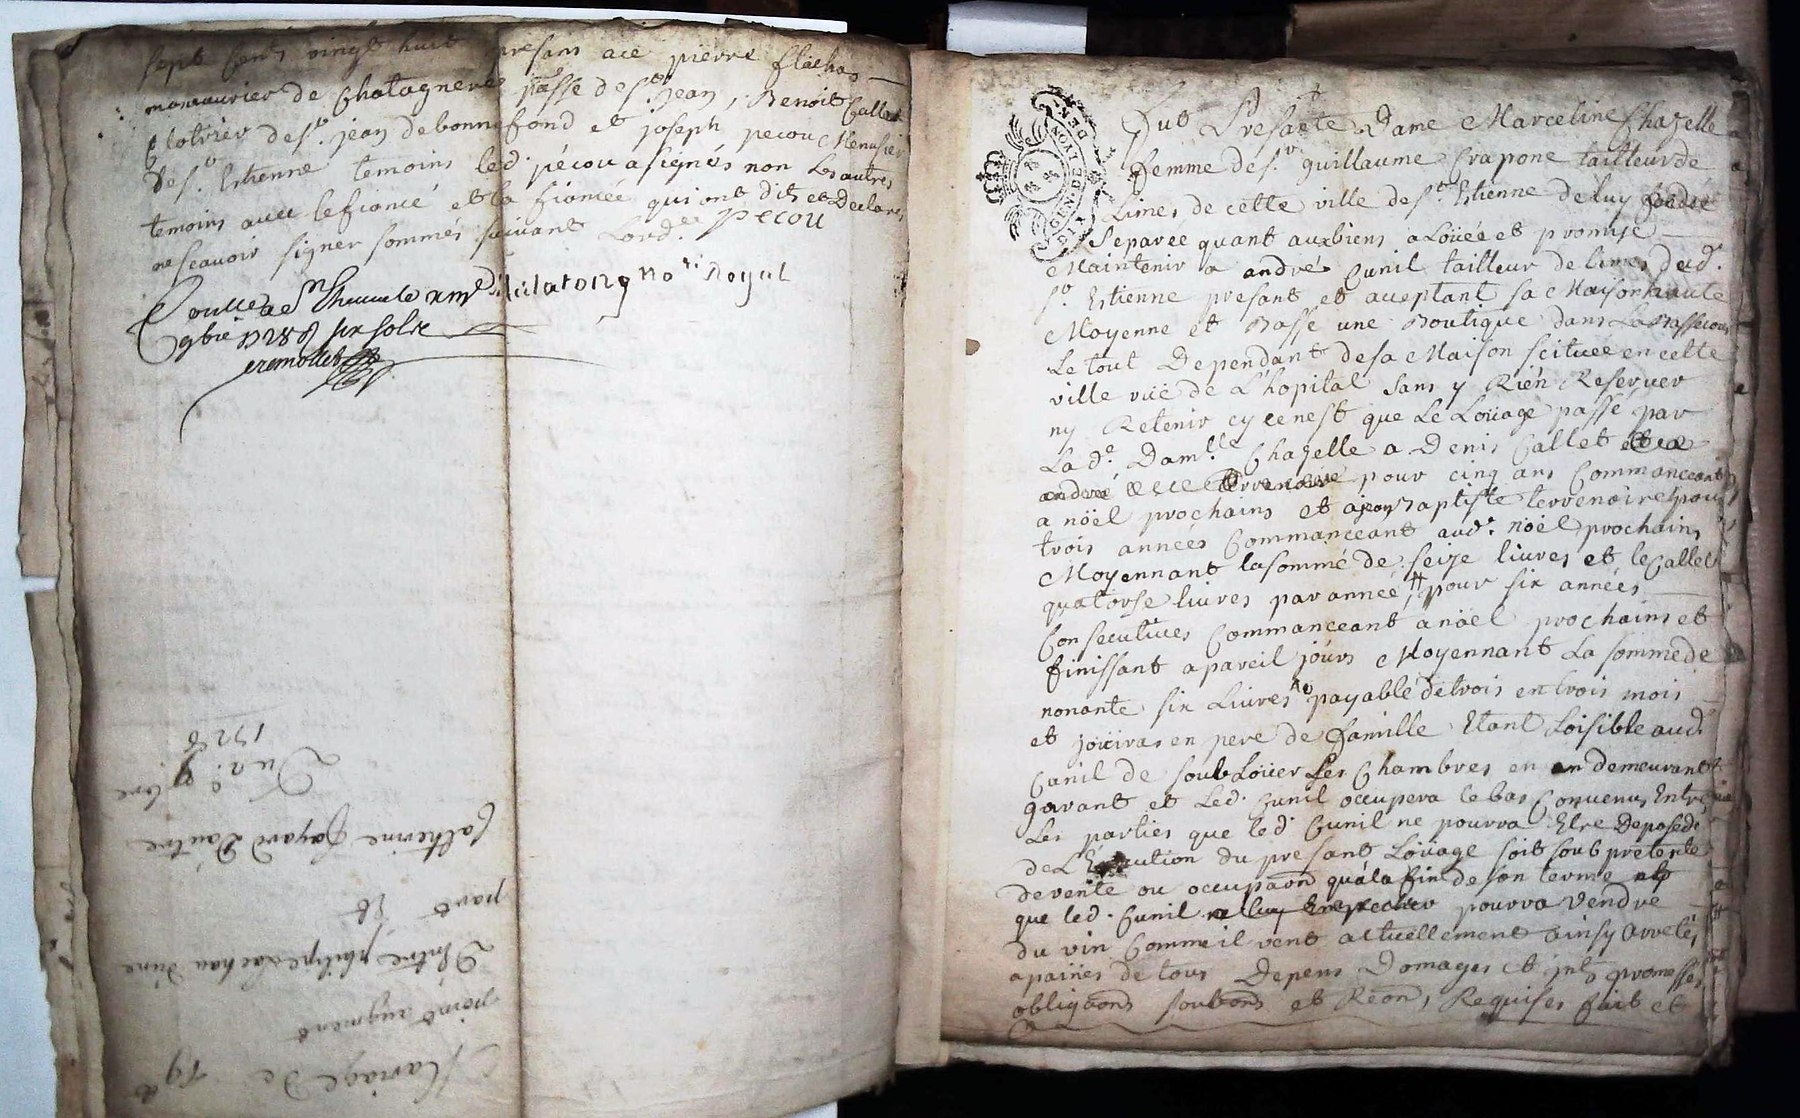 sept cents vingt huit presans ace pierre flachas
manœuvrier de Chatagneret passe de st. jean, Benoit Callet
Clotrier de st. jean de bonnefond et joseph pecou Menusier
de st. Estienne temoins led. pécou a signés non Les autres
temoins avec le fiancé et la fiancée qui ont dits et Declarés
ne scavoir signer sommés suivant Lord.ce Pecou
Royal
1728 six sols
Mariage De
point augment
Entre philipe
d'une
part
Et
Catherine Fayard D'autre
Du 2.e 9bre
1728
GEN. DE LYON
DEN.
Fut Presante Dame Marceline Chazelle
femme de sr. guillaume Crapone tailleur de
Limes de cette ville de st. Estienne de luy
Separée quant aux biens a Loüée et promise
Maintenir a andré Cunil tailleur de limes dud.
st. Estienne presant et aceptant sa Maison haute
Moyenne et Basse une Boutique dans La Bassecour
Le tout Dependant de sa Maison scituée en cette
ville rüe de L'hopital sans y Rién Reserver
ny Retenir cy ce nest que Le Loüage passé par
La de. Damlle. Chazelle a Denis Callet
pour cinq ans Commanceant
a nöel prochains et a jean Baptiste terrenoire pour
trois années Commanceant aud. nöel prochains
Moyennant la sommé de seize livres et le Callet
quatorse livres par année, pour six années
Consecutives Commanceant a nöel prochains et
finissant a pareil joúrs Moyennant La somme de
nonante six Livres payable de trois en trois mois
et joüiras en pere de famille Etant Loisible aud.
Cunil de soub Loüer Les Chambres en demeurant
garant et Led. Cunil occupera le bas Convenus Entre
Les parties que led. Cunil ne pourra Etre Deposedé
de L'Execution du presant Loüage soit soub pretexte
de vente ou occupaõn qu'á la fin de son terme
que led. Cunil pourra vendre
du vin Comme il vent actuellement ainsy arretés
a paines de tous Depens Domages et ints. promesses
obligaõns soubõns et Reõns, Requises fait et